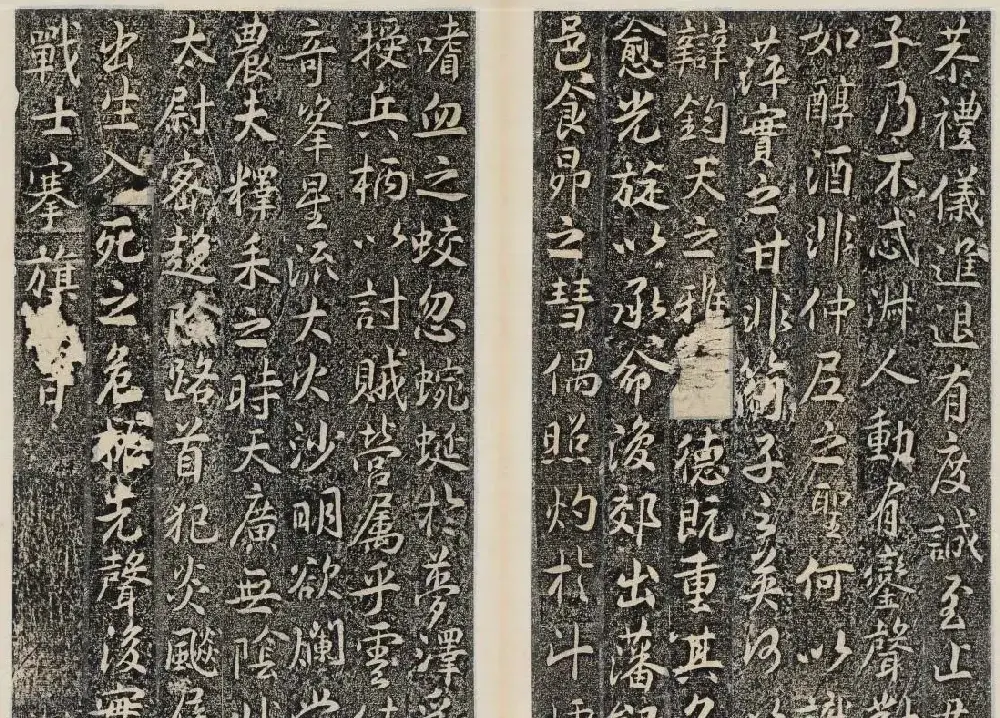 恭禮儀進退有度誠至止
子乃不忒淋人動有鑾聲
如醇酒非仲尼之聖何以
萍實之甘非簡子之英何以
辯鈞天之雅德既重其
愈光旋以承命浚郊出藩
邑食昴之彗偶照灼於斗
嗜血之蛟忽蜿蜒於夢澤
授兵柄以討賊營属乎雲
奇峯星流大火沙明欲爛
農夫釋耒之時天廣無陰
太尉密趍險路首犯炎飈
出生入死之危椐先聲後
戰士搴旗